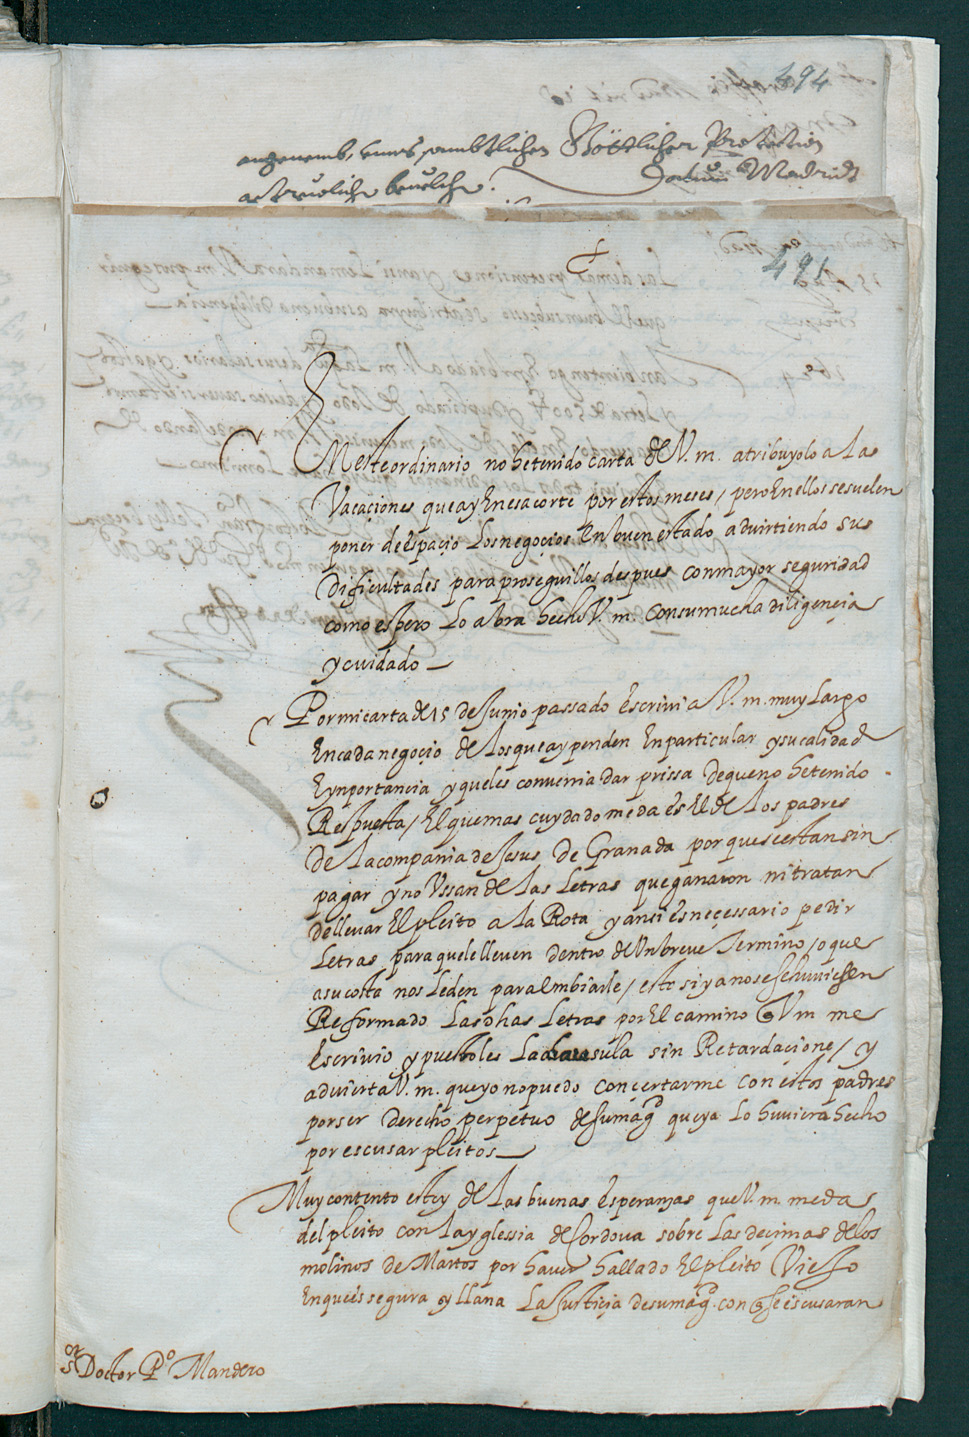 494
angenemb, Göttlicher Protection
Datum Madridt
491
En este ordinario no he tenido carta de V. m. atribuyolo a las
Vacaçiones que ay En esa corte por estos meses / pero En ellos se suelen
poner de espaçio Los negoçios En buen estado advirtiendo sus
Dificultades para proseguillos despues con mayor seguridad
como espero Lo abra hecho V. m. Con su mucha diligençia
y cuidado
Por mi carta de 15 de Junio passado Escrivi a V. m. muy Largo
En cada negoçio de los que ay penden En particular y su calidad
E ynportancia y que les convenia dar prissa de que no he tenido
Respuesta / El que mas cuydado me da es El de los padres
De la compania de Jesus de Granada porque se estan sin
pagar y no Vssan de las Letras que ganaron ni tratan
de llevar El pleito a la Rota y ansi es neçessario pedir
Letras para que le lleven dentro de Un breve Termino / o que
a su costa nos Le den para Embiarle / esto si ya no se huviesen
Reformado Las dhas Letras por El camino q V m me
Escrivio y puestoles La clausula sin Retardaçione / y
advierta V. m. que yo no puedo conçertarme con estos padres
por ser Derecho perpetuo de su magd que ya Lo huviera hecho
por escusar pleitos
Muy contento estoy de las buenas Esperanzas que V. m. me da
del pleito con la yglessia de Cordova sobre Las deçimas de los
molinos de Martos por haver hallado El pleito Viejo
En que es segura y llana La Justiçia de su magd. con q se escusaran
sor Doctor Po Mandero